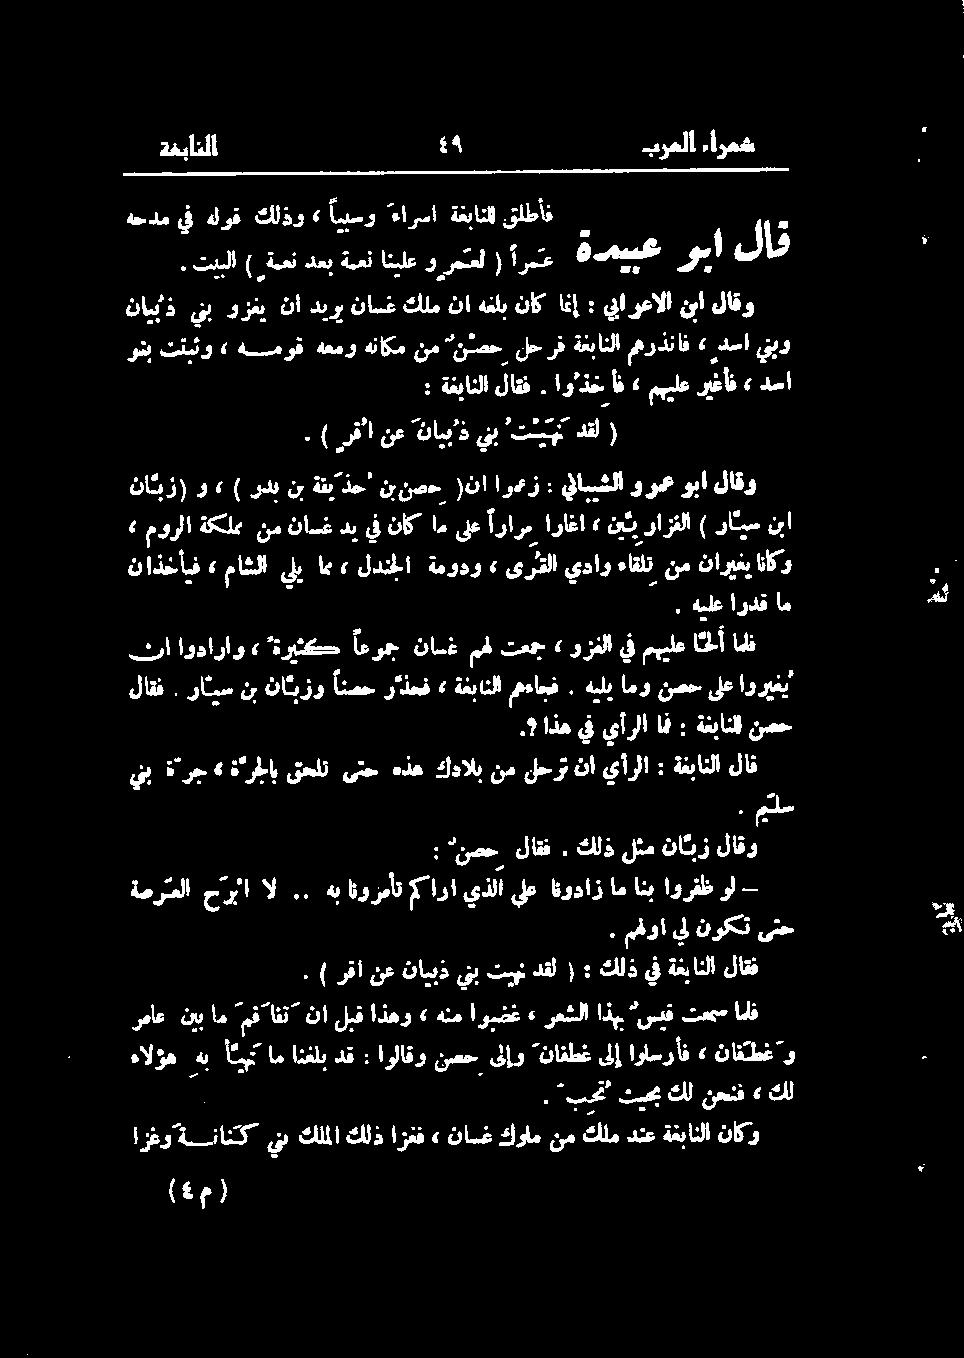 شعراء العرب ٤٩ النابغة
قال ابو عبيدة
فأطلق النابغة اسراءَ وسبياً ، وذلك قوله في مدحه
عَمراً ( لعَمرٍو علينا نعمة بعد نعمةٍ ) البيت .
وقال ابن الاعرابي : إنما كان بلغه ان ملك غسان يريد ان يغزو بني ذُبيان
وبني اسدٍ ، فانذرهم النابغة فرحل حِصنٌ من مكانه ومعه قومـه ، وثبتت بنو
اسد ، فأغير عليهم ، فأُخِذوا . فقال النابغة :
( لقد نَهَيْتُ بني ذُبيانَ عن اقُرٍ ) .
وقال ابو عمرو الشيباني : زعموا ان( حِصن بن حُذَيفة بن بدر ) ، و (زبَّان
ابن سيَّار ) الفزاريَّين ، اغاروا مِراراً على ما كان في يد غسان من مملكة الروم ،
وكانا يغيران من تِلقاء وادي القُرى ، ودومة الجندل ، مما يلي الشام ، فيأخذان
ما قدرا عليه .
فلما ألحَّا عليهم في الغزو ، جمعت لهم غسان جموعاً كثيرةً ، وارادوا ان
يُغيروا على حصن وما يليه . فجاءهم النابغة ، فحذَّر حصناً وزبَّان بن سيَّار . فقال
حصن للنابغة : فما الرأي في هذا ؟.
قال النابغة : الرأي ان ترحل من بلادك هذه حتى تلحق بالجرَّة ، جرَّة بني
سلَيم .
وقال زبَّان مثل ذلك . فقال حِصنٌ :
– لو ظفروا بنا ما زادونا على الذي اراكم تأمروننا به .. لا ابْرَحُ العَرصة
حتى تكون لي اولهم .
فقال النابغة في ذلك : ( لقد نهيت بني ذبيان عن اقر ) .
فلما سمعت قيسٌ بهذا الشعر ، غضبوا منه ، وهذا قبل ان يَتفاقَمَ ما بين عامر
وغَطَفان ، فأرسلوا إلى غطفانَ وإلى حصن وقالوا : قد بلغنا ما نَهيَّأ بهِ هؤلاء
لك ، فنحن لك بحيث تُحِبُّ .
وكان النابغة عند ملك من ملوك غسان ، فغزا ذلك الملك بني كنـانـةَ وغزا
(م٤)